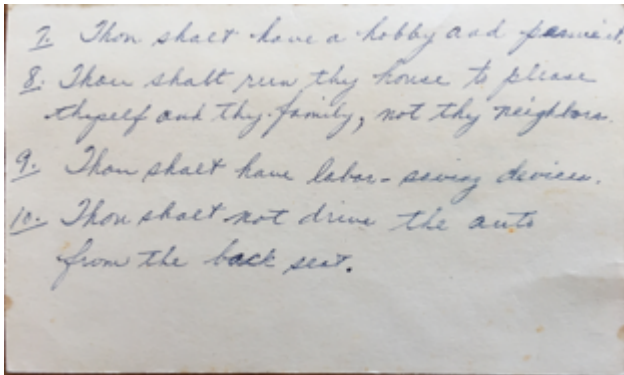 7. Thou shalt have a hobby and pursue it.
8. Thou shalt run thy house to please
thyself and thy family, not thy neighbors.
9. Thou shalt have labor-saving devices.
10. Thou shalt not drive the auto
from the back seat.